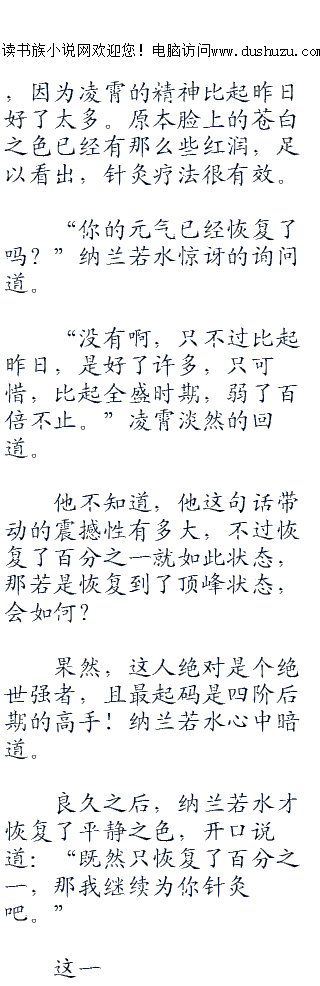 读书族小说网欢迎您！电脑访问www.dushuzu.com
，因为凌霄的精神比起昨日
好了太多。原本脸上的苍白
之色已经有那么些红润，足
以看出，针灸疗法很有效。
“你的元气已经恢复了
吗？”纳兰若水惊讶的询问
道。
“没有啊，只不过比起
昨日，是好了许多，只可
惜，比起全盛时期，弱了百
倍不止。”凌霄淡然的回
道。
他不知道，他这句话带
动的震撼性有多大，不过恢
复了百分之一就如此状态，
那若是恢复到了顶峰状态，
会如何？
果然，这人绝对是个绝
世强者，且最起码是四阶后
期的高手！纳兰若水心中暗
道。
良久之后，纳兰若水才
恢复了平静之色，开口说
道：“既然只恢复了百分之
一，那我继续为你针灸
吧。”
这一